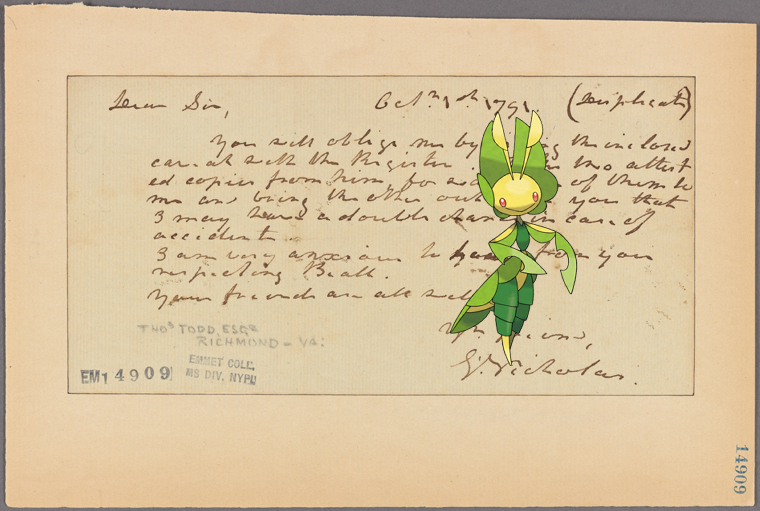 Dear Sir,
Oct. 1791. (Duplicate)
You will oblige me by the inclosed
at with the Register two attest
ed copies from him, for of them to
me and bring the other you that
I may have a double chance in case of
accident.
I am very anxious to hear from you
respecting Beall.
Your friends are all well
Yr. friend,
G. Nicholas.
THOS TODD, ESQR
RICHMOND - VA.
EMMET COLL.
MS DIV. NYPL
EM14909
14909